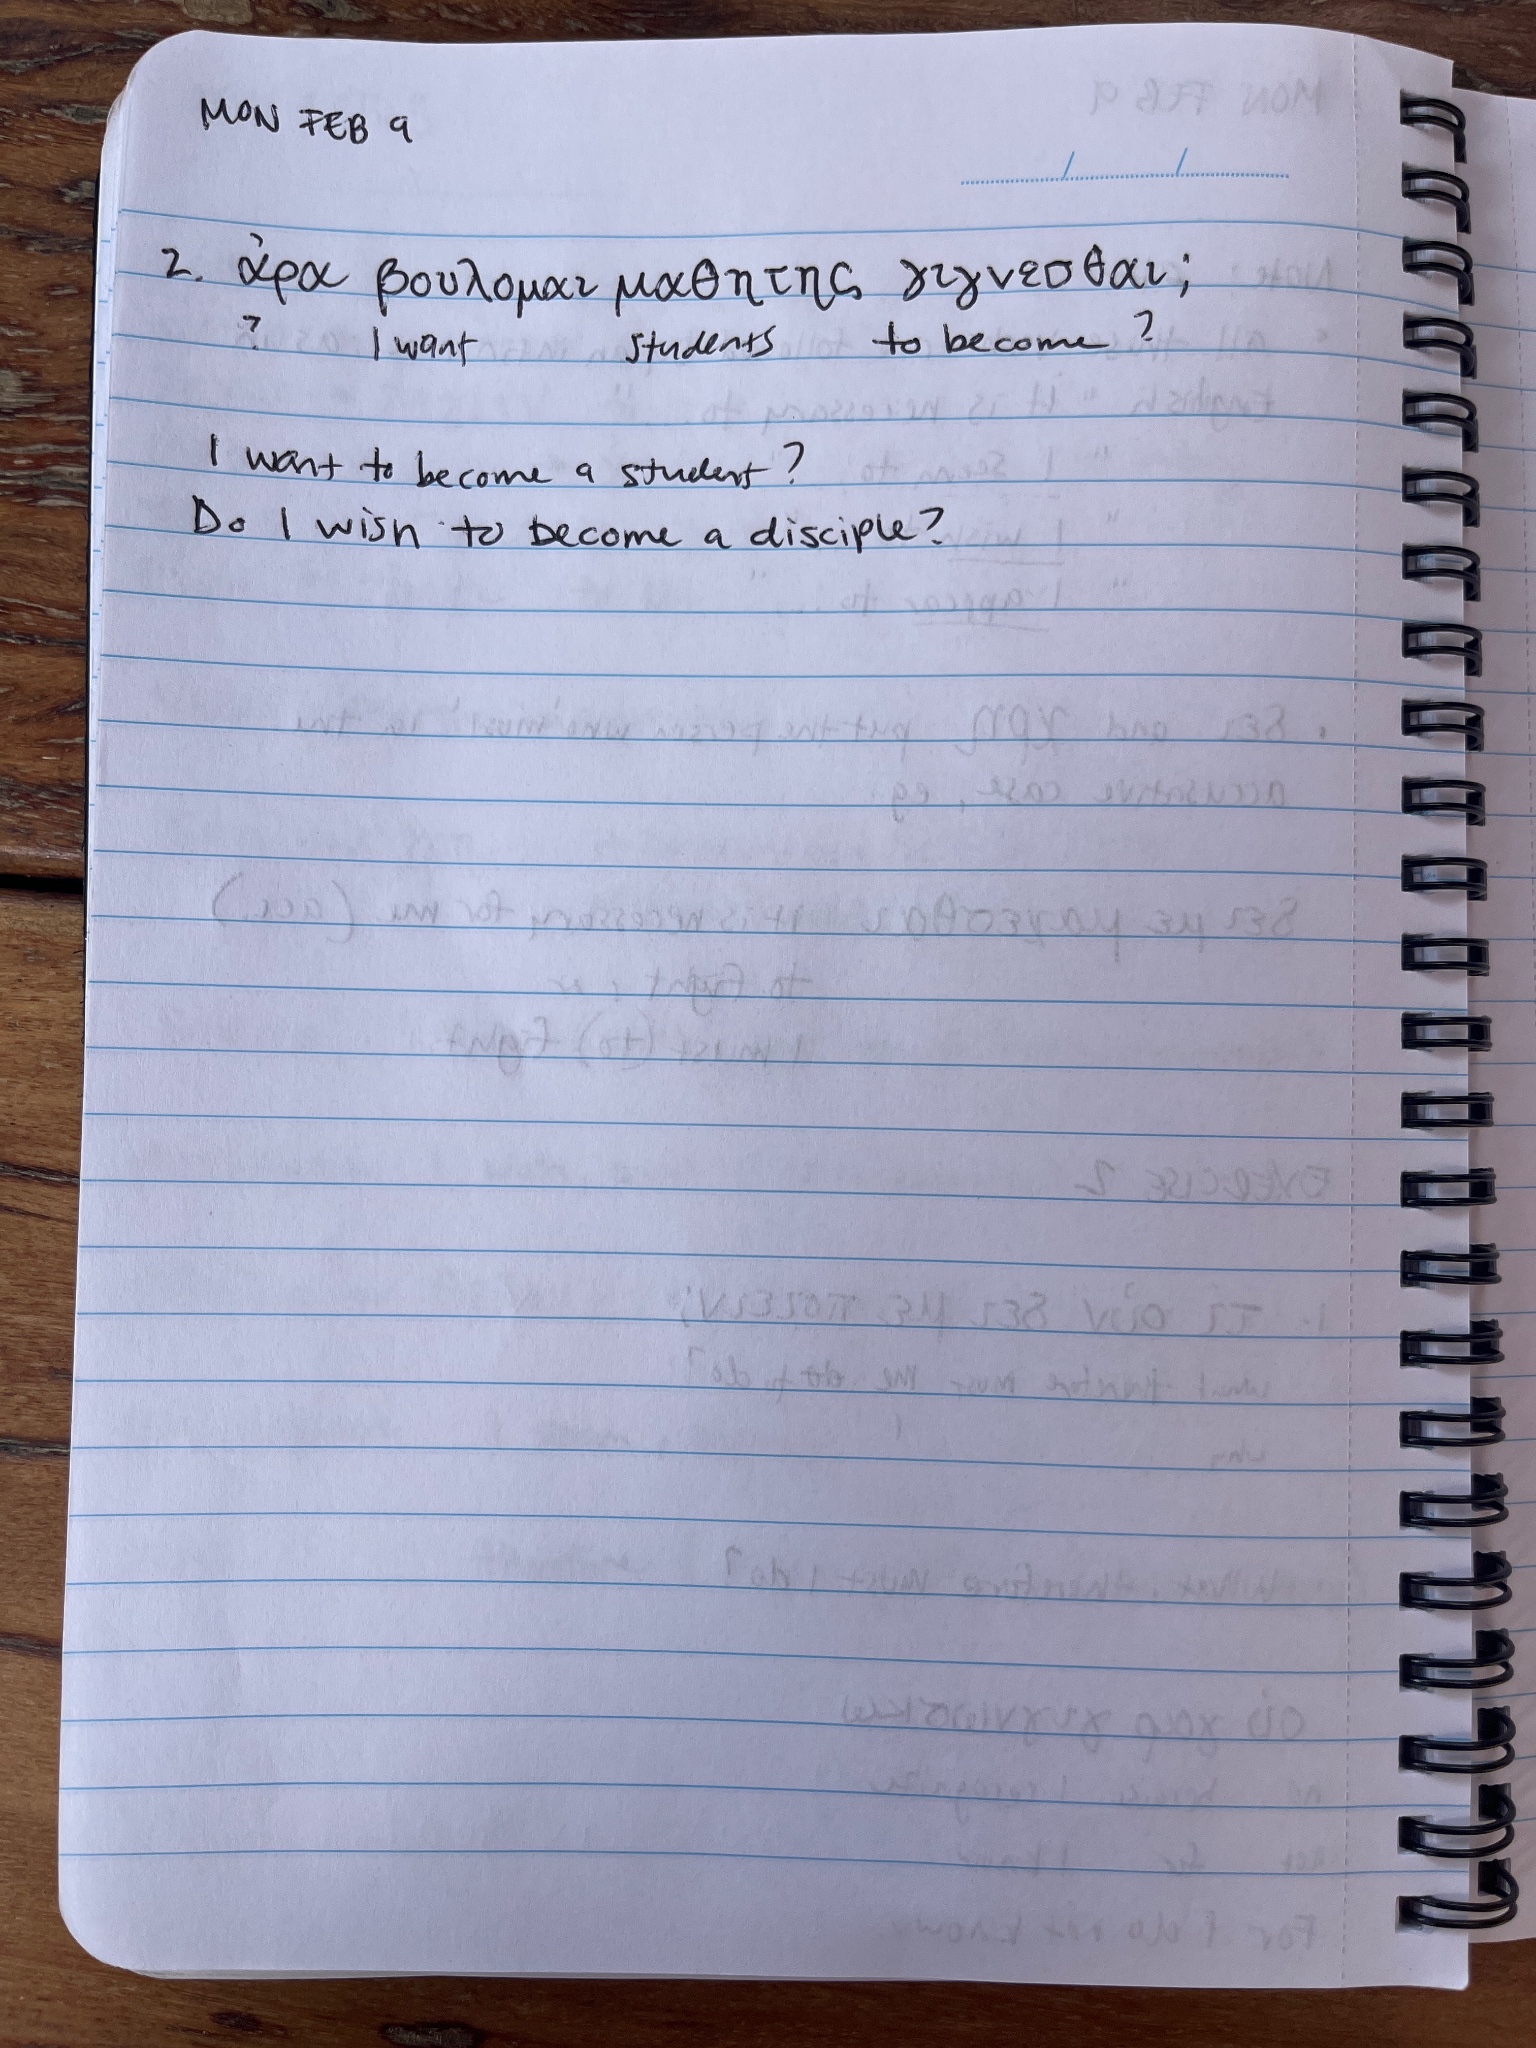 MON FEB 9
2. ἀρα βουλομαι μαθητης γιγνεσθαι;
? I want students to become?
I want to become a student?
Do I wish to become a disciple?